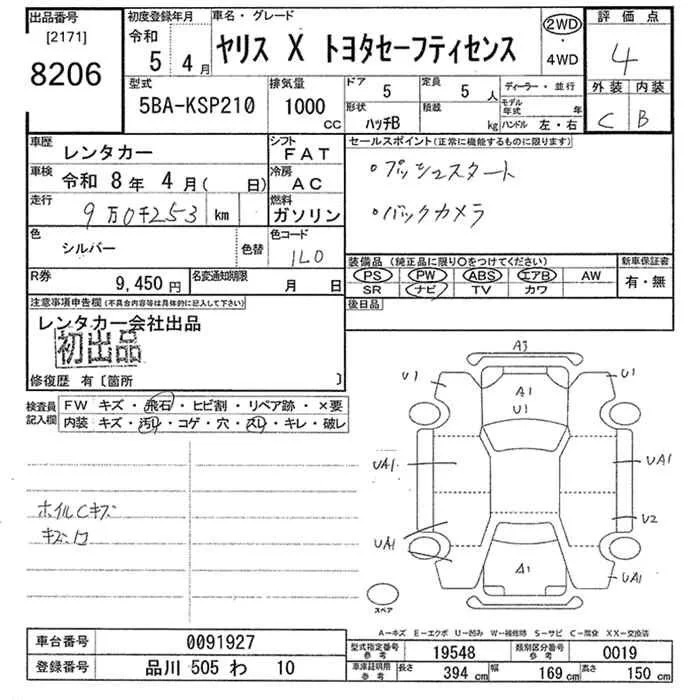 出品番号 初度登録年月 車名・グレード 評価点
[2171] 令和 ヤリス X トヨタセーフティセンス 2WD
8206 5 4月 ・ 4
4WD
型式 排気量 ドア 5 定員 5人 ディーラー・並行 外装 内装
5BA-KSP210 1000cc 形状 ハッチB 積載 kg モデル年式 年 C B
ハンドル 左・右
車歴 レンタカー シフト FAT セールスポイント(正常に機能するものに限ります)
車検 令和 8年 4月( 日) 冷房 AC ・プッシュスタート
走行 9万0千253 km 燃料 ガソリン ・バックカメラ
色 シルバー 色替 色コード 1L0
装備品(純正品に限り○をつけてください) 新車保証書
R券 9,450円 名変通知期限 月 日 PS PW ABS エアB AW 有・無
SR ナビ TV カワ
注意事項申告欄(不具合内容等は具体的に記入して下さい) 後日品
レンタカー会社出品
初出品
修復歴 有〔箇所 〕
検査員記入欄 FW キズ・飛石・ヒビ割・リペア跡・×要
内装 キズ・汚れ・コゲ・穴・スレ・キレ・破レ
A3
U1 A1 U1
U1
UA1 UA1
ホイルCキズ U2
UA1
A1 UA1
スペア
A-キズ E-エクボ U-凹み W-補修跡 S-サビ C-腐食 XX-交換済
車台番号 0091927 型式指定番号 参考 19548 類別区分番号 参考 0019
登録番号 品川 505 わ 10 車庫証明用 参考 長さ 394 cm 幅 169 cm 高さ 150 cm